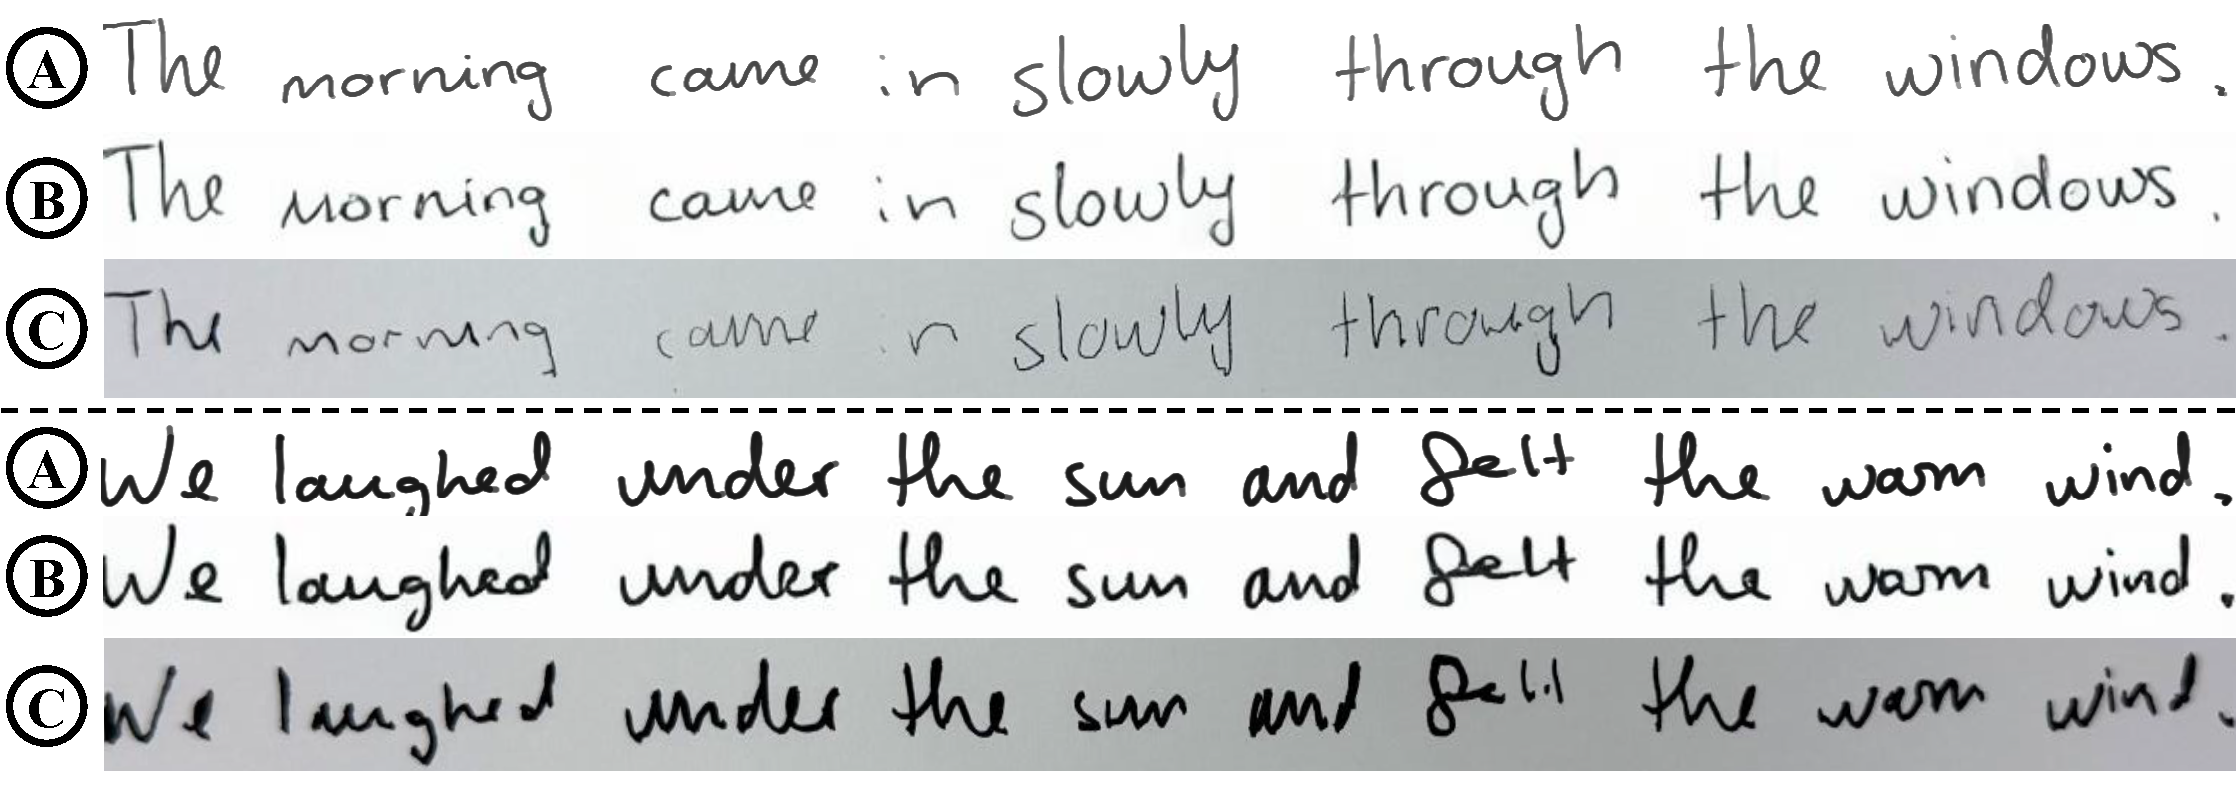 A The morning came in slowly through the windows.
B The morning came in slowly through the windows.
C The morning came in slowly through the windows.
A We laughed under the sun and felt the warm wind.
B We laughed under the sun and felt the warm wind.
C We laughed under the sun and felt the warm wind.